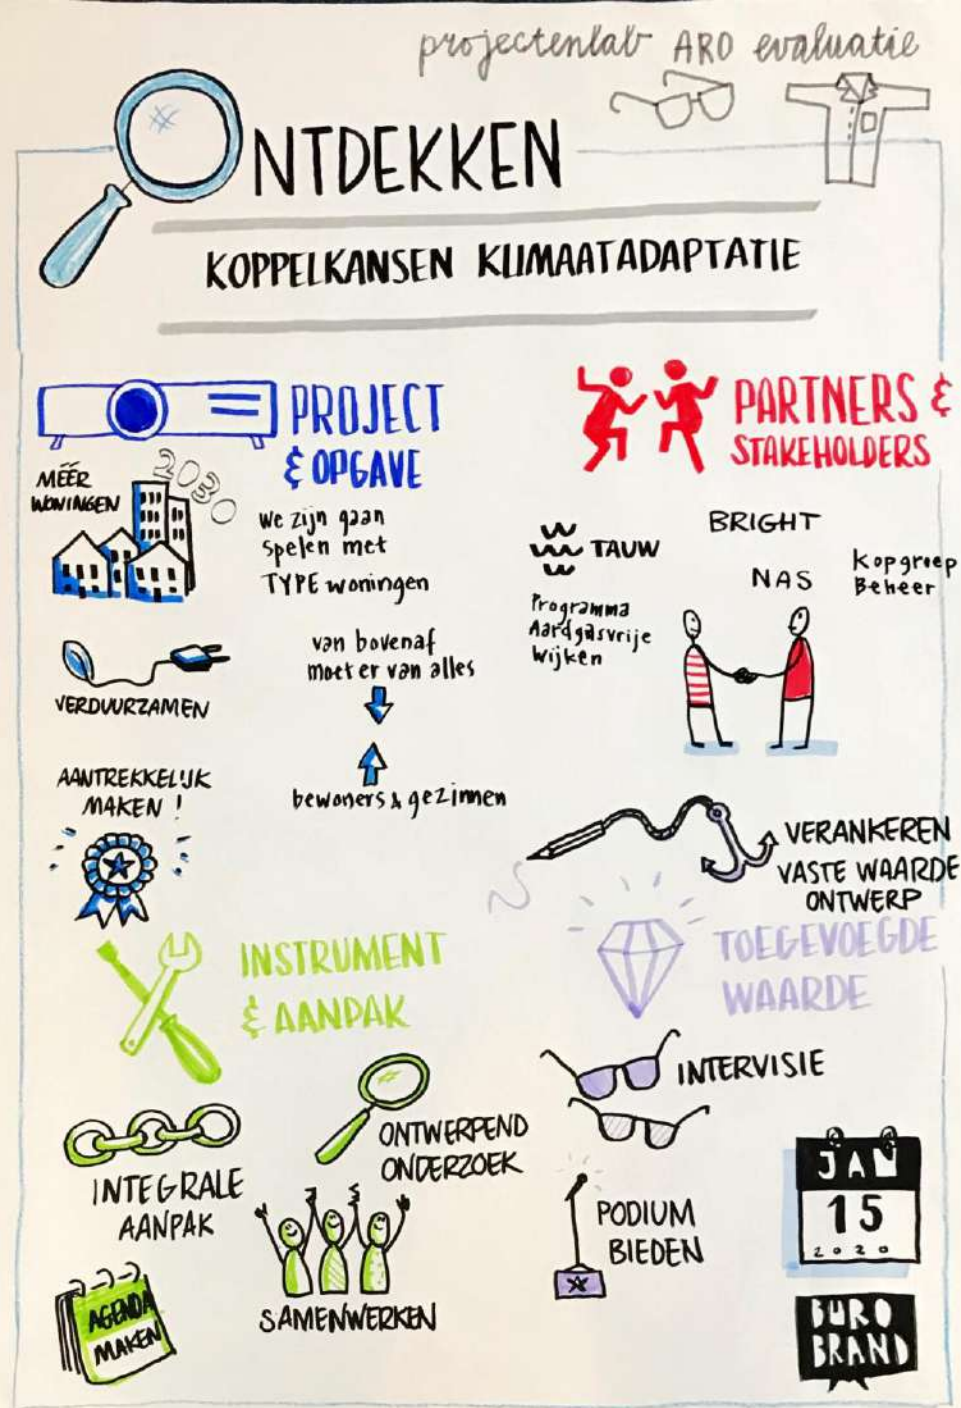 projectenlab ARO evaluatie
ONTDEKKEN
KOPPELKANSEN KLIMAATADAPTATIE
PROJECT
& OPGAVE
MÉÉR
WONINGEN
2030
We zijn gaan
spelen met
TYPE woningen
VERDUURZAMEN
van bovenaf
moet er van alles
bewoners & gezinnen
AANTREKKELIJK
MAKEN !
PARTNERS &
STAKEHOLDERS
TAUW
BRIGHT
NAS
Kopgroep
Beheer
Programma
Aardgasvrije
Wijken
VERANKEREN
VASTE WAARDE
ONTWERP
INSTRUMENT
& AANPAK
INTEGRALE
AANPAK
ONTWERPEND
ONDERZOEK
SAMENWERKEN
AGENDA
MAKEN
TOEGEVOEGDE
WAARDE
INTERVISIE
PODIUM
BIEDEN
JAN
15
2020
BURO
BRAND